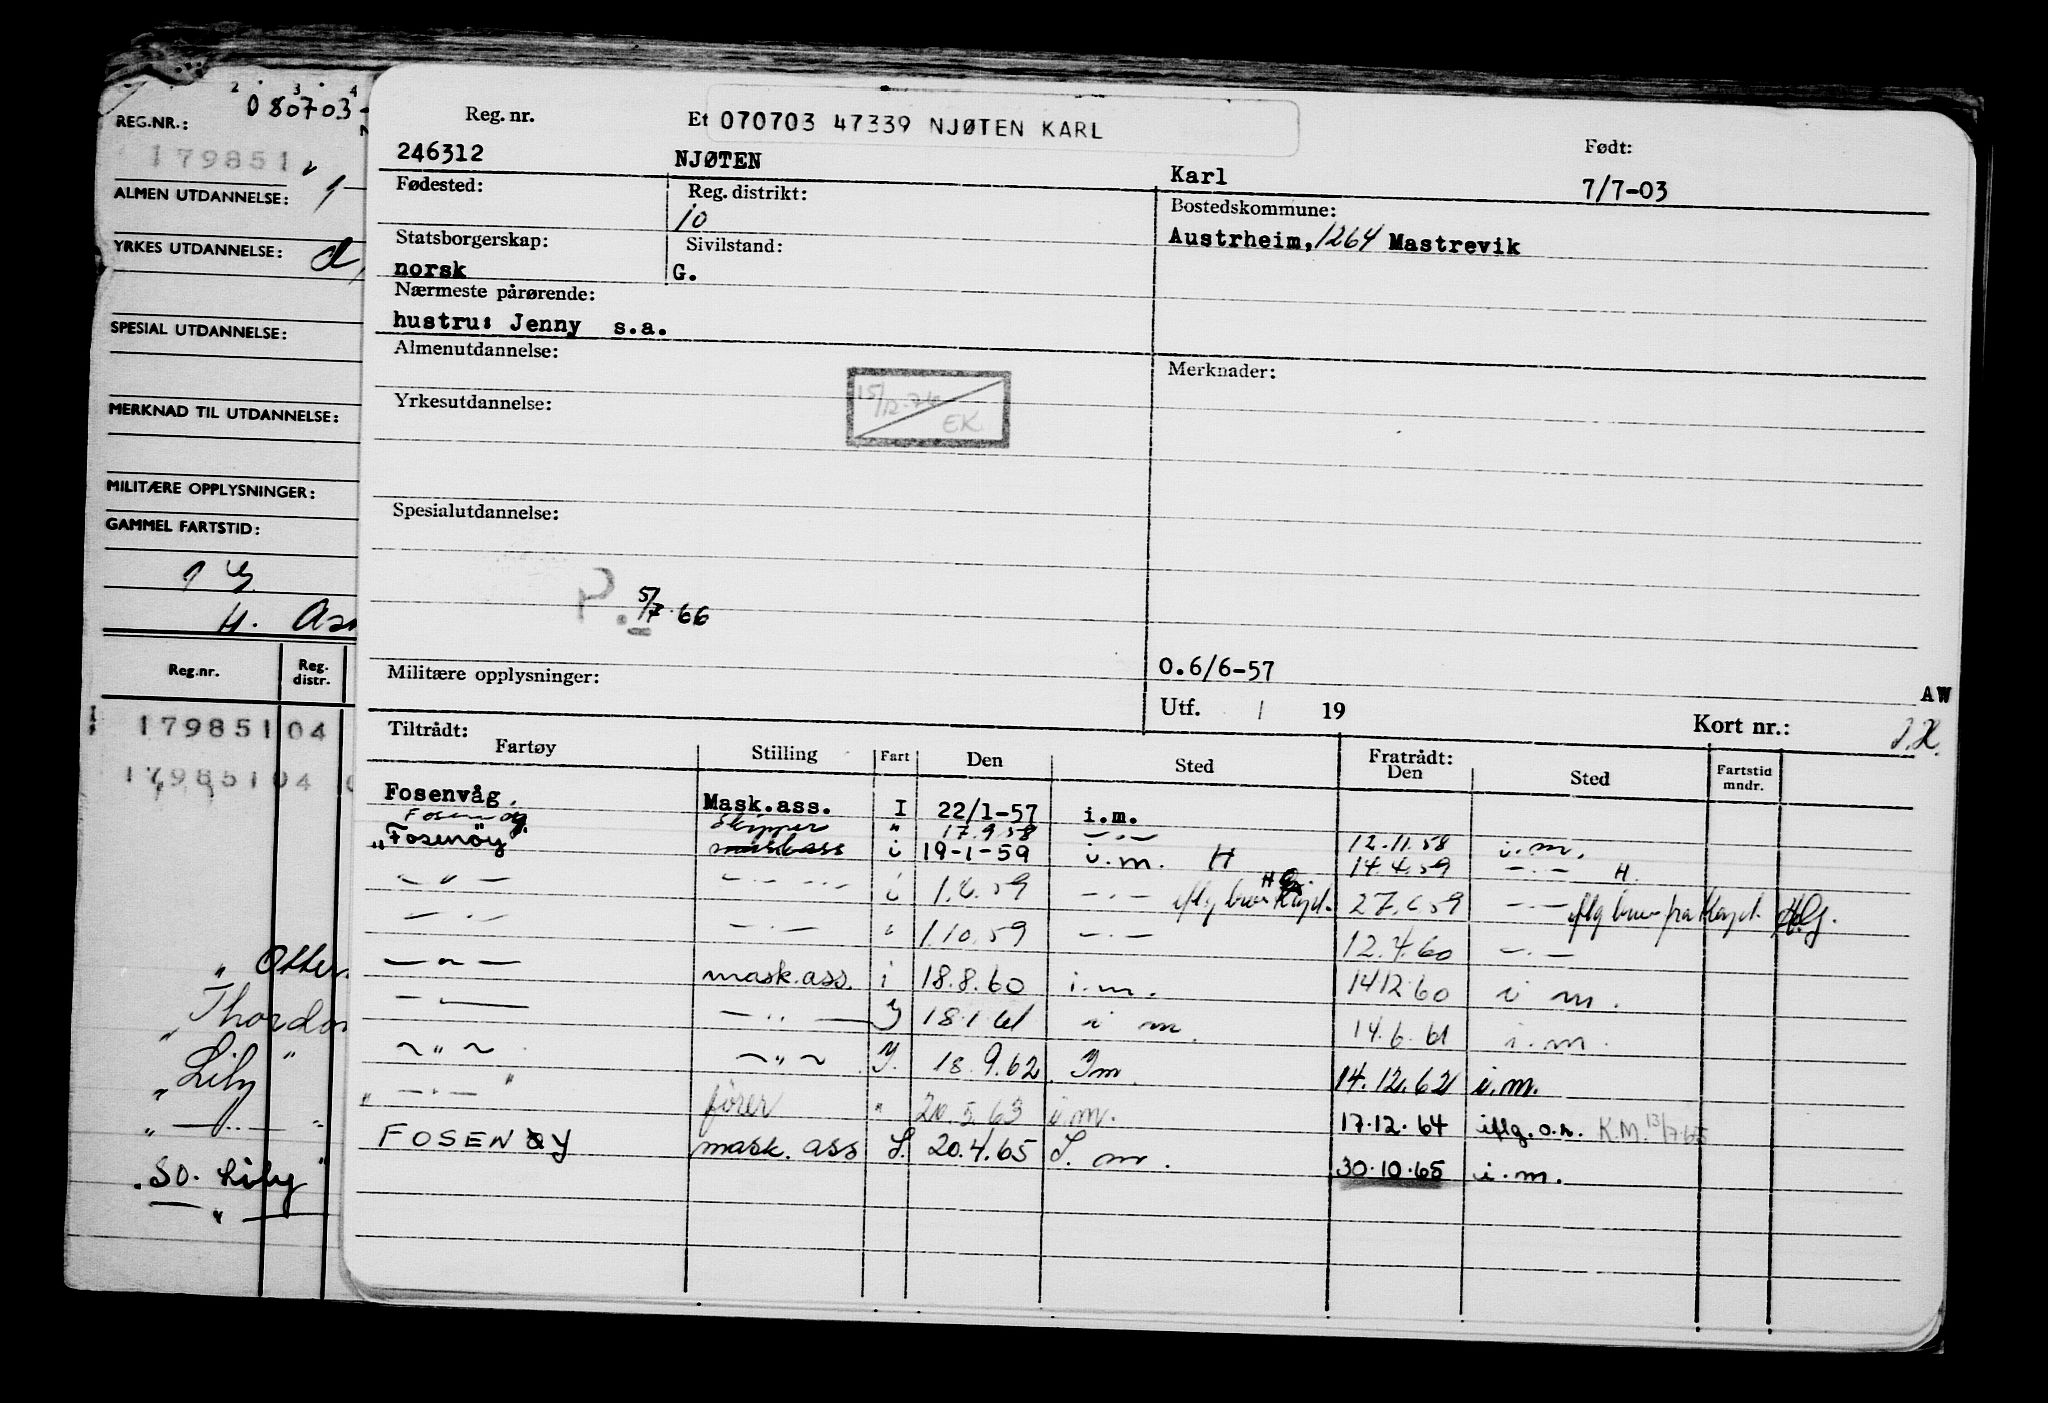 2 3 4
REG.NR.: 080703-
179851
ALMEN UTDANNELSE:
YRKES UTDANNELSE:
SPESIAL UTDANNELSE:
MERKNAD TIL UTDANNELSE:
MILITÆRE OPPLYSNINGER:
GAMMEL FARTSTID:
H. Ass
Reg.nr. Reg. distr.
17985104
17985104
" Otter
" Thordo
" Lily "
" — " —
So. Lily "
" —
Reg. nr. Et 070703 47339 NJØTEN KARL Født:
246312 NJØTEN Karl 7/7-03
Fødested: Reg. distrikt: Bostedskommune:
10 Austrheim, 1264 Mastrevik
Statsborgerskap: Sivilstand:
norsk G.
Nærmeste pårørende:
hustru: Jenny s.a.
Almenutdannelse: Merknader:
Yrkesutdannelse: 15/12-76 EK.
Spesialutdannelse:
P. 5/7 66
Militære opplysninger: O.6/6-57 AW
Utf. / 19 Kort nr.:
Tiltrådt: Fratrådt:
Fartøy Stilling Fart Den Sted Den Sted Fartstid mndr.
Fosenvåg. Mask.ass. I 22/1-57 i.m.
Fosenøy Skipper " 17.9.58 — " — 12.11.58 i.m.
"Fosenøy" maskass i 19-1-59 i.m. H 14.4.59 — " — H.
— " — — " — i 1.6.59 — " — iflg brev H 27.6.59 — " — iflg brev fra
— " — — " — " 1.10.59 — " — 12.4.60 — " —
— " — mask.ass. i 18.8.60 i.m. 14.12.60 i m.
— " — — " — I 18.1.61 i m. 14.6.61 i.m.
— " — — " — I. 18.9.62. Im. 14.12.62 i.m.
" — " — " fører " 20.5.63 i.m. 17.12.64 iflg. o.s. K.M. 13/7-65
FOSENØY mask. ass I. 20.4.65 I. m. 30.10.65 i.m.